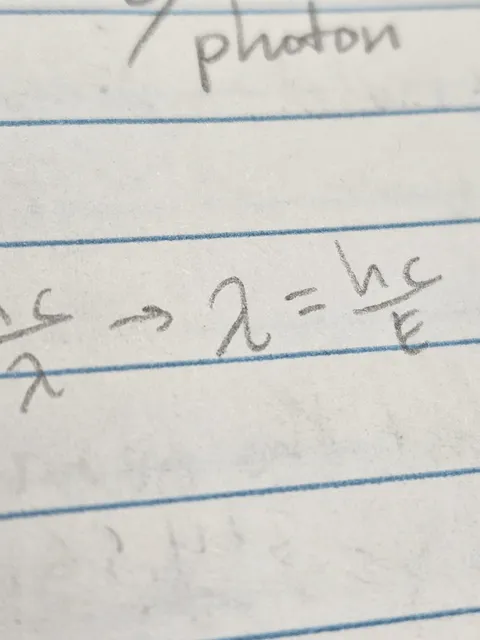 /photon
hc/λ → λ = hc/E